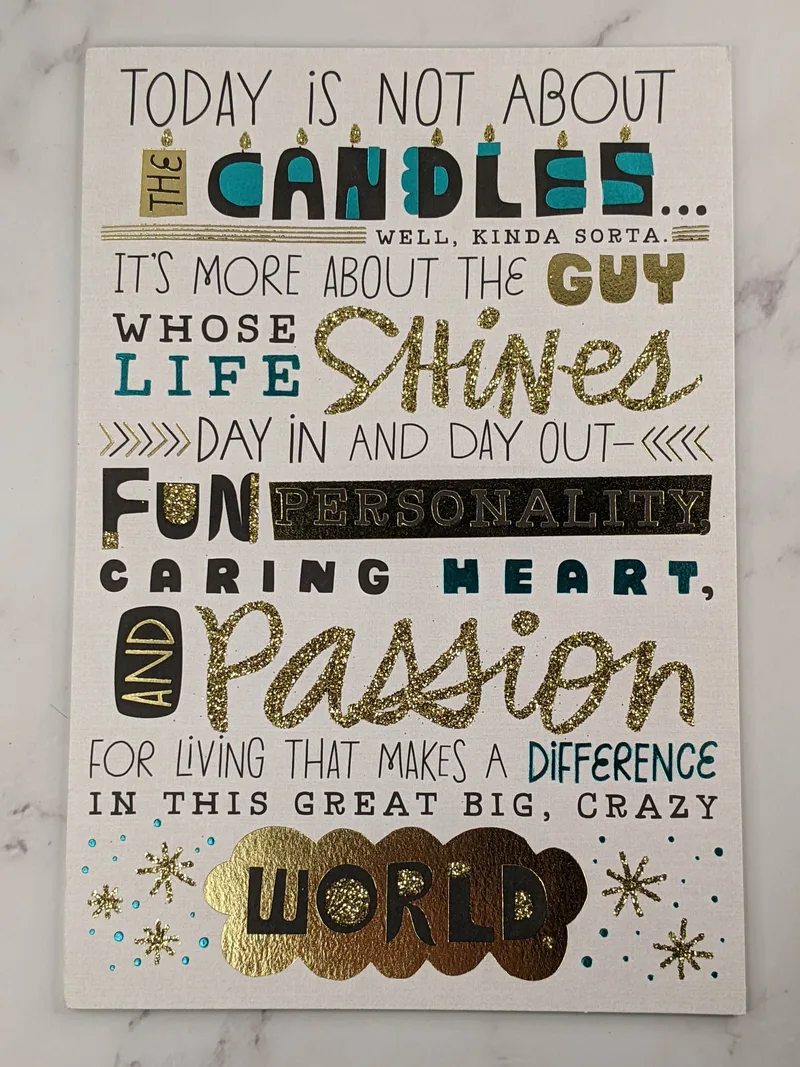 TODAY iS NOT ABOUT
THE CANDLES...
WELL, KINDA SORTA.
IT'S MORE ABOUT THE GUY
WHOSE
LIFE SHiNes
DAY iN AND DAY OUT–
FUN PERSONALITY,
CARING HEART,
AND Passion
FOR LiViNG THAT MAKES A DiFFERENCE
IN THIS GREAT BIG, CRAZY
WORLD.